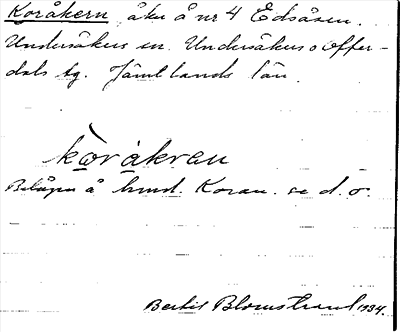 Koråkern, åker å nr 4 Edsåsen.
Undersåkers sn. Undersåkers o Offer-
dals tg. Jämtlands län.
kòråkran
Belägen å hmd. Koran. se d. o.
Bertil Blomstrand 1934.